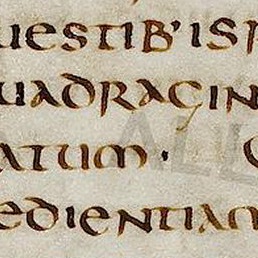 uestib'isr
uadragin
atum · 
edientiam